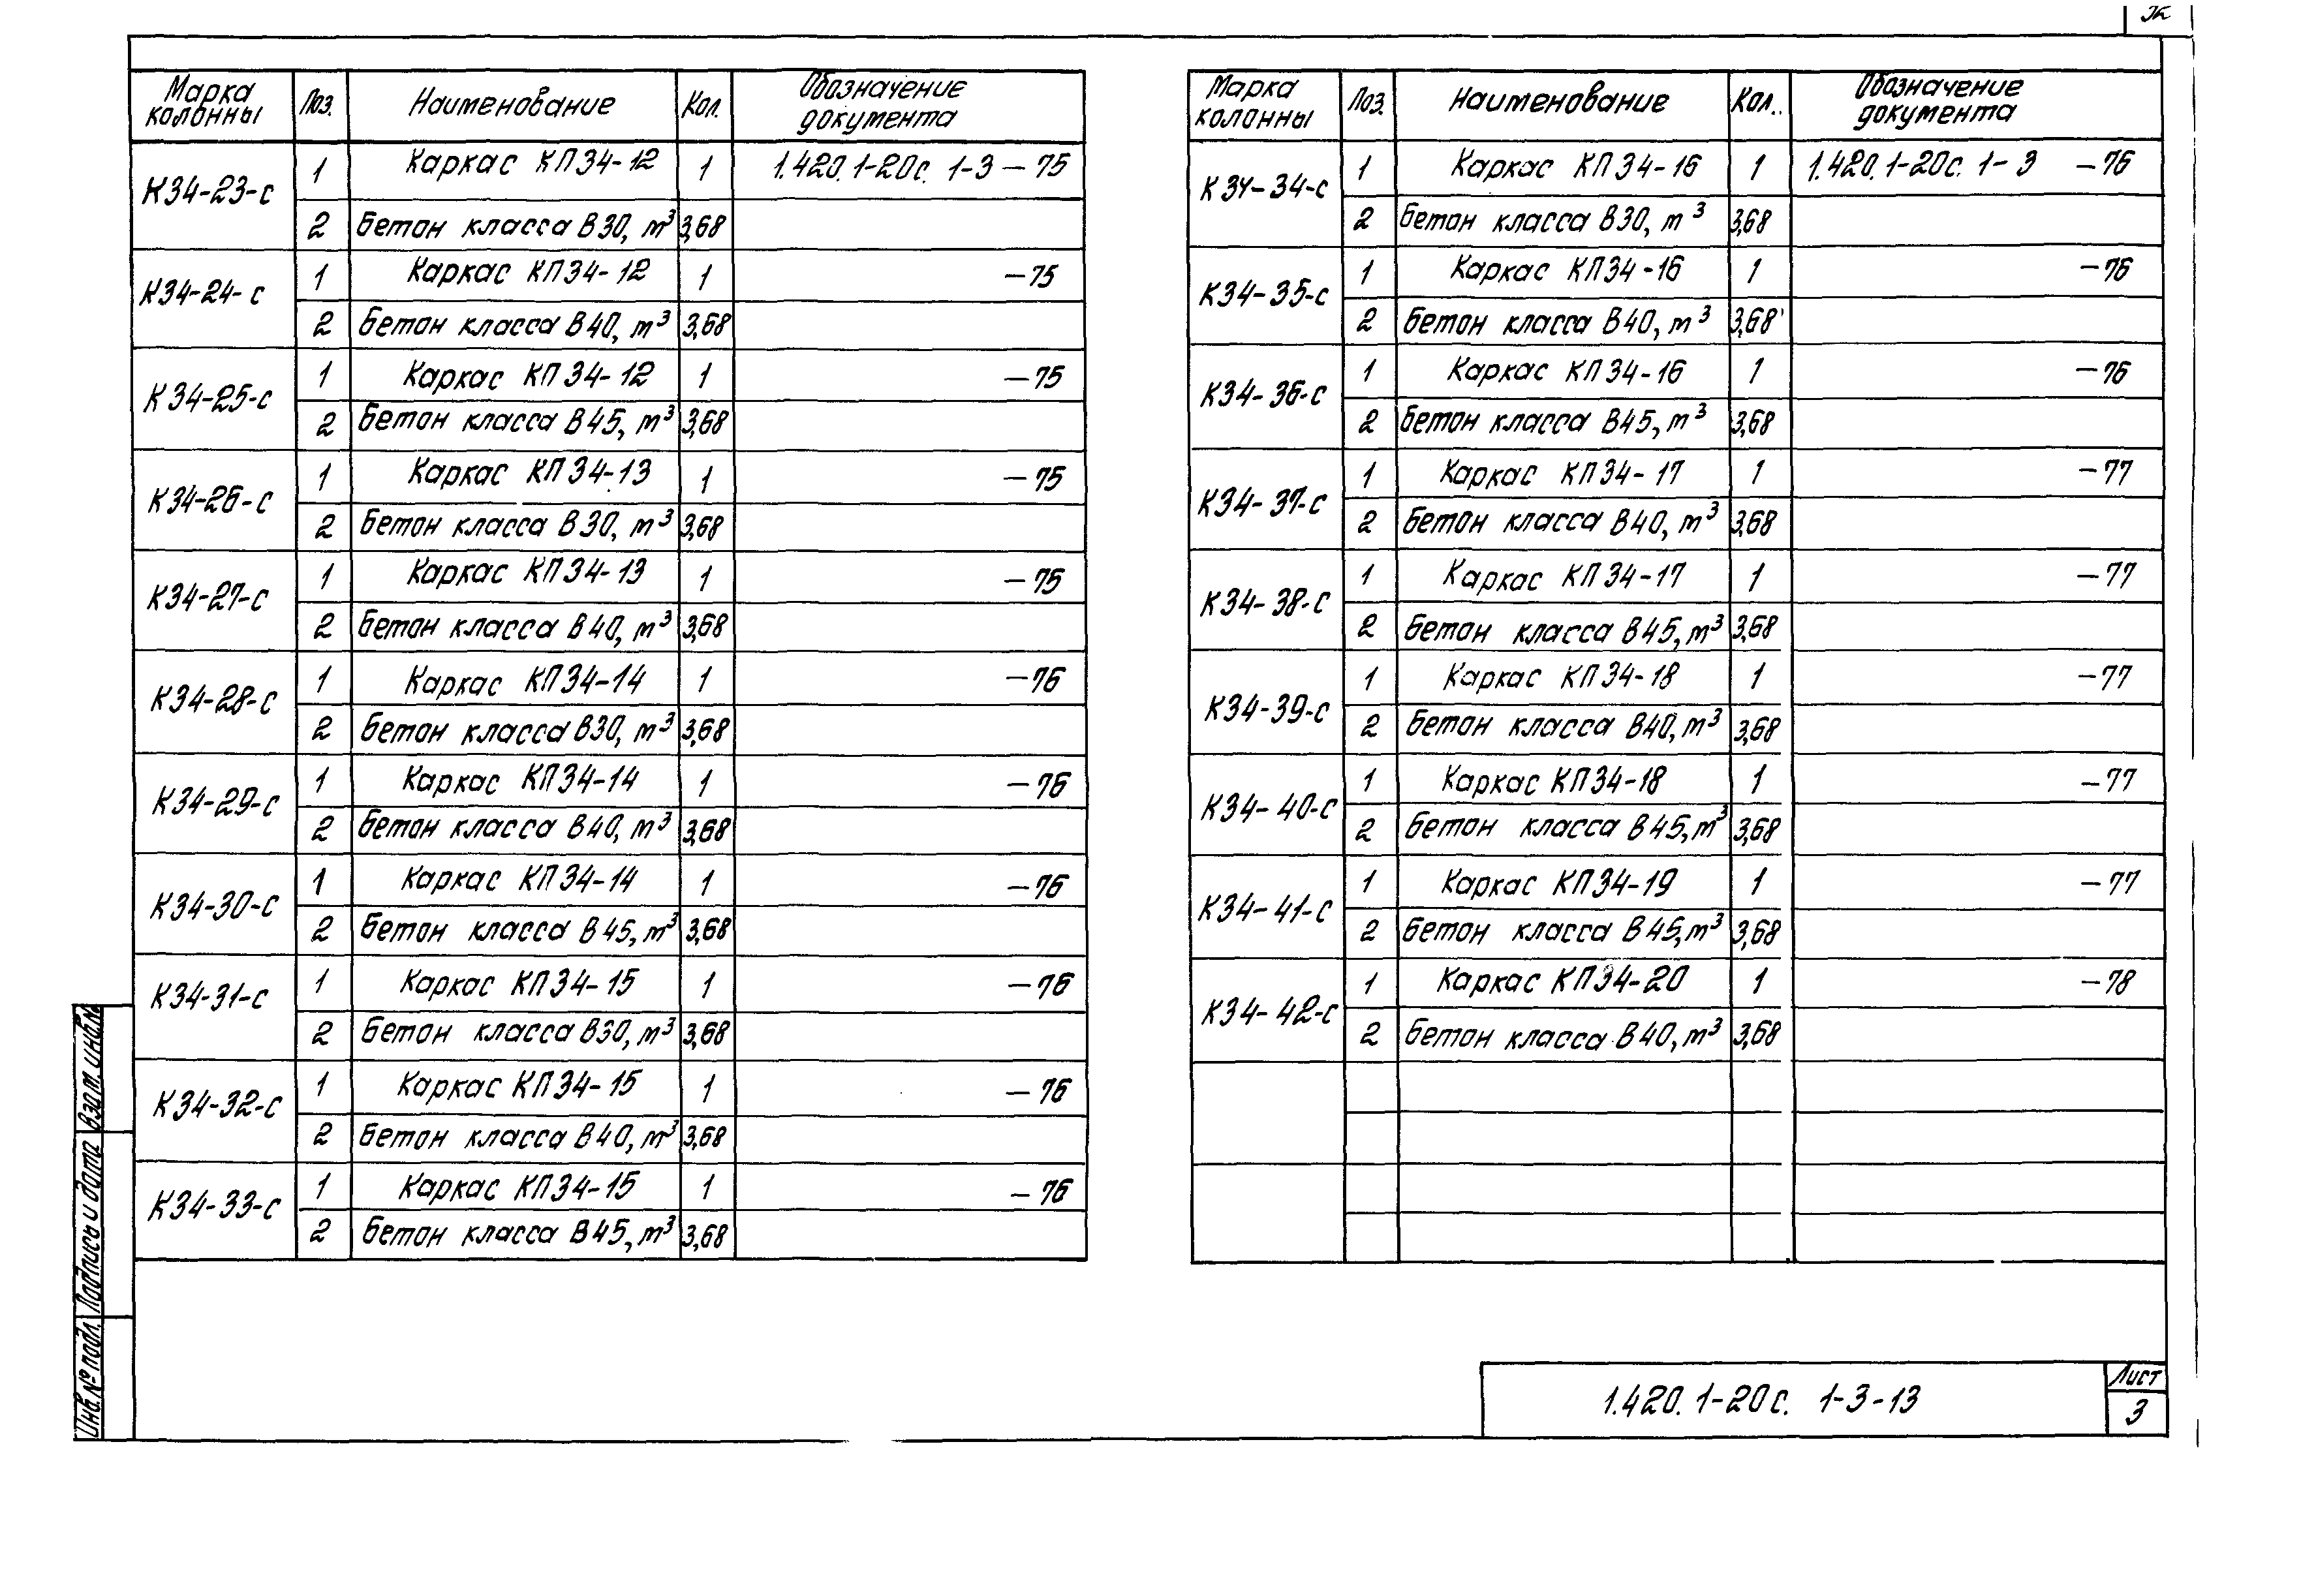 Марка колонны Поз. Наименование Кол. Обозначение документа
К34-23-с 1 Каркас КП34-12 1 1.420.1-20с. 1-3 -75
2 Бетон класса В30, m³ 3,68
К34-24-с 1 Каркас КП34-12 1 -75
2 Бетон класса В40, m³ 3,68
К34-25-с 1 Каркас КП34-12 1 -75
2 Бетон класса В45, m³ 3,68
К34-26-с 1 Каркас КП34-13 1 -75
2 Бетон класса В30, m³ 3,68
К34-27-с 1 Каркас КП34-13 1 -75
2 Бетон класса В40, m³ 3,68
К34-28-с 1 Каркас КП34-14 1 -76
2 Бетон класса В30, m³ 3,68
К34-29-с 1 Каркас КП34-14 1 -76
2 Бетон класса В40, m³ 3,68
К34-30-с 1 Каркас КП34-14 1 -76
2 Бетон класса В45, m³ 3,68
К34-31-с 1 Каркас КП34-15 1 -76
2 Бетон класса В30, m³ 3,68
К34-32-с 1 Каркас КП34-15 1 -76
2 Бетон класса В40, m³ 3,68
К34-33-с 1 Каркас КП34-15 1 -76
2 Бетон класса В45, m³ 3,68
Марка колонны Поз. Наименование Кол. Обозначение документа
К34-34-с 1 Каркас КП34-16 1 1.420.1-20с. 1-3 -76
2 Бетон класса В30, m³ 3,68
К34-35-с 1 Каркас КП34-16 1 -76
2 Бетон класса В40, m³ 3,68
К34-36-с 1 Каркас КП34-16 1 -76
2 Бетон класса В45, m³ 3,68
К34-37-с 1 Каркас КП34-17 1 -77
2 Бетон класса В40, m³ 3,68
К34-38-с 1 Каркас КП34-17 1 -77
2 Бетон класса В45, m³ 3,68
К34-39-с 1 Каркас КП34-18 1 -77
2 Бетон класса В40, m³ 3,68
К34-40-с 1 Каркас КП34-18 1 -77
2 Бетон класса В45, m³ 3,68
К34-41-с 1 Каркас КП34-19 1 -77
2 Бетон класса В45, m³ 3,68
К34-42-с 1 Каркас КП34-20 1 -78
2 Бетон класса В40, m³ 3,68
Инв.№ подл. Подпись и дата Взам.инв.№
1.420.1-20с. 1-3-13
Лист
3